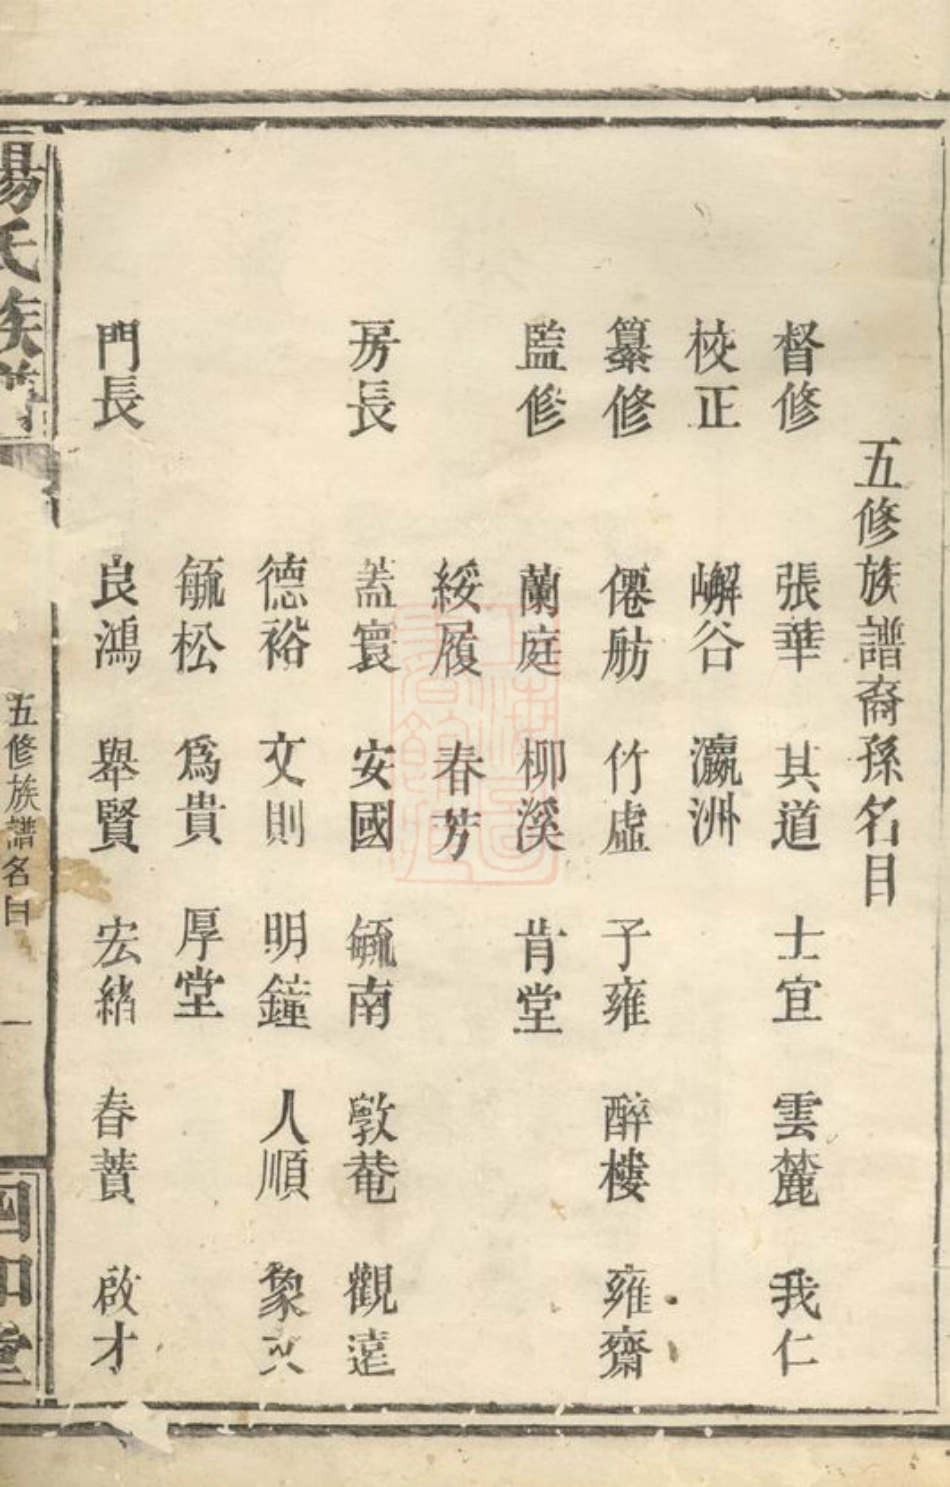 五修族譜裔孫名目
督修 張華 其道 士宜 雲麓 我仁
校正 嶰谷 瀛洲
纂修 僊舫 竹虛 子雍 醉樓 雍齋
監修 蘭庭 柳溪 肯堂
綏履 春芳
房長 蓋寰 安國 毓南 敦菴 觀遠
德裕 文則 明鐘 人順 象文
毓松 爲貴 厚堂
門長 良鴻 舉賢 宏緒 春蕡 啟才
氏族譜
五修族譜名目
一
堂